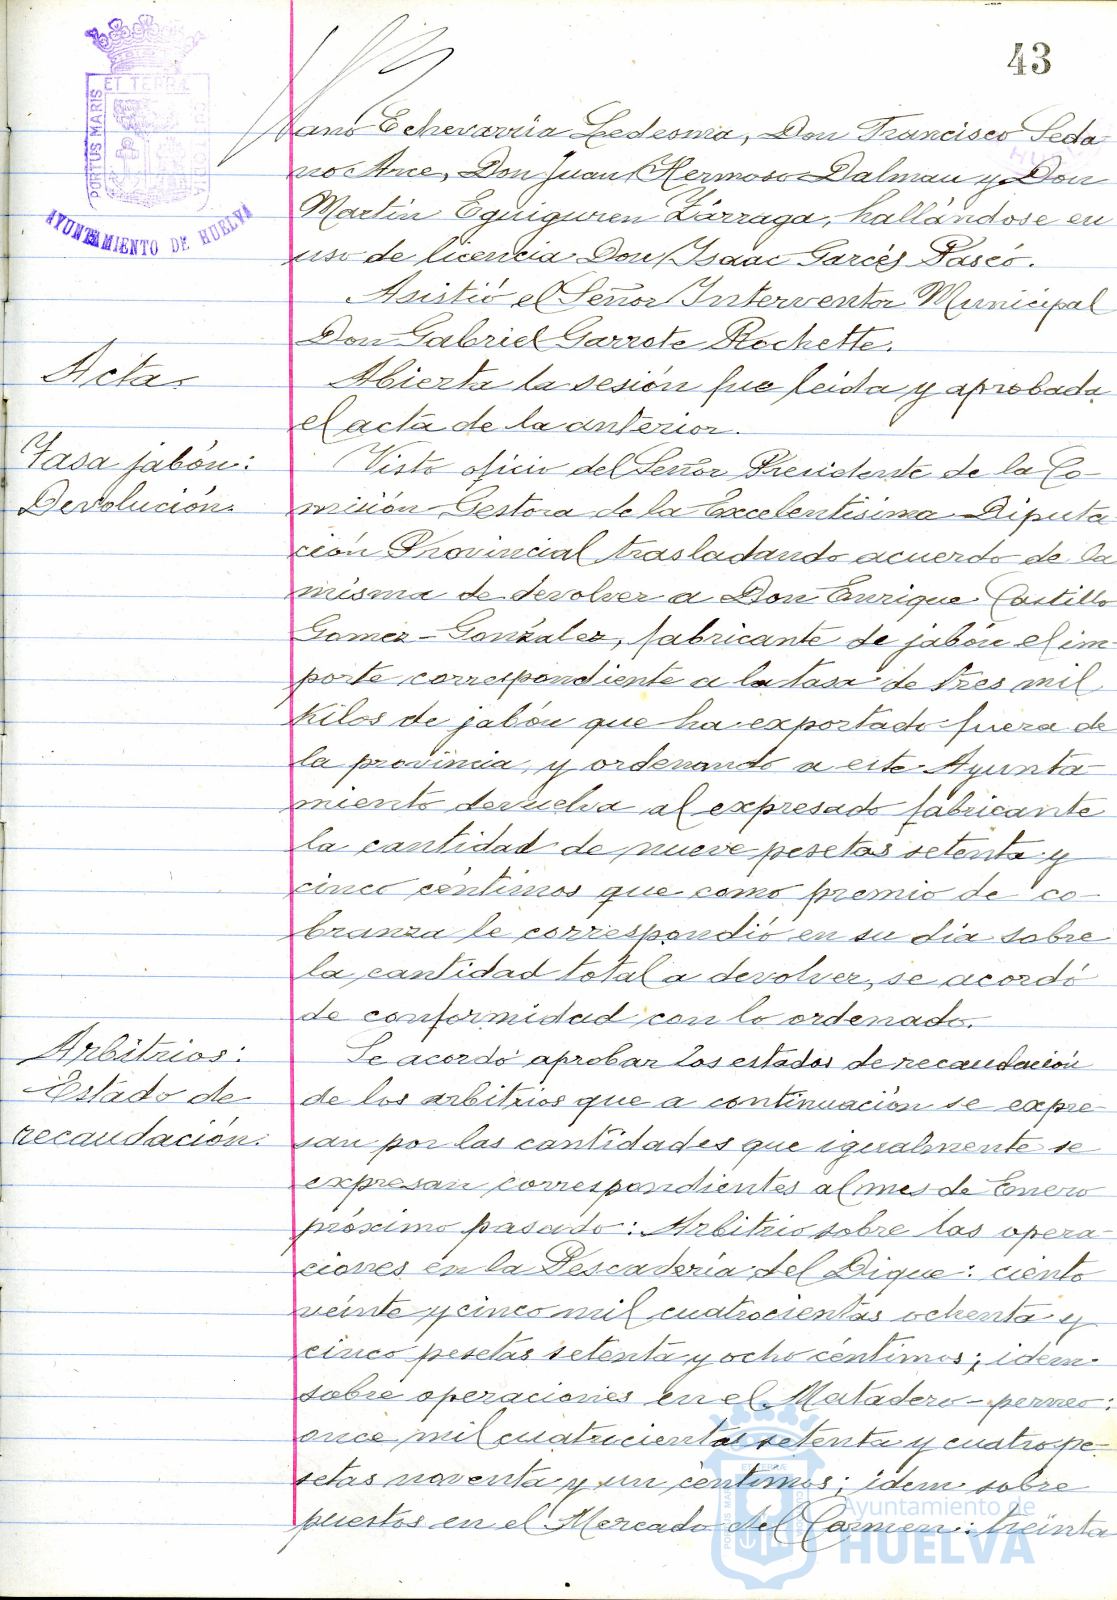 43
PORTUS MARIS
ET TERRÆ
CUSTODIA
AYUNTAMIENTO DE HUELVA
ano Echevarría Ledesma, Don Francisco Seda
no Arce, Don Juan Hermoso Dalmau y Don
Martín Eguiguren Zárraga, hallándose en
uso de licencia Don Isaac Garcés Pascó.
Asistió el Señor Interventor Municipal
Don Gabriel Garrote Rochette.
Acta.
Abierta la sesión fue leída y aprobada
el acta de la anterior.
Tasa jabón:
Devolución.
Visto oficio del Señor Presidente de la Co-
misión Gestora de la Excelentísima Diputa-
ción Provincial trasladando acuerdo de la
misma de devolver a Don Enrique Castillo
Gomez-González, fabricante de jabón el im-
porte correspondiente a la tasa de tres mil
kilos de jabón que ha exportado fuera de
la provincia, y ordenando a este Ayunta-
miento devuelva al expresado fabricante
la cantidad de nueve pesetas setenta y
cinco céntimos que como premio de co-
branza le correspondió en su día sobre
la cantidad total a devolver, se acordó
de conformidad con lo ordenado.
Arbitrios:
Estado de
recaudación.
Se acordó aprobar los estados de recaudación
de los arbitrios que a continuación se expre-
san por las cantidades que igualmente se
expresan correspondientes al mes de Enero
próximo pasado: Arbitrio sobre las opera-
ciones en la Pescadería del Dique: ciento
veinte y cinco mil cuatrocientas ochenta y
cinco pesetas setenta y ocho céntimos; idem
sobre operaciones en el Matadero-perneo:
once mil cuatrocientas setenta y cuatro pe-
setas noventa y un céntimos; idem sobre
puestos en el Mercado del Carmen: treinta
Ayuntamiento de
HUELVA